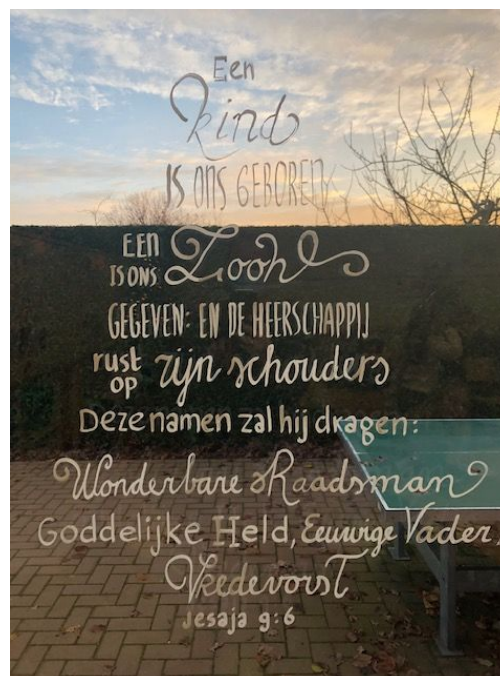 Een
kind
IS ONS GEBOREN
EEN
IS ONS Zoon
GEGEVEN: EN DE HEERSCHAPPIJ
rust
op zijn schouders
Deze namen zal hij dragen:
Wonderbare Raadsman
Goddelijke Held, Eeuwige Vader,
Vredevorst
Jesaja 9:6